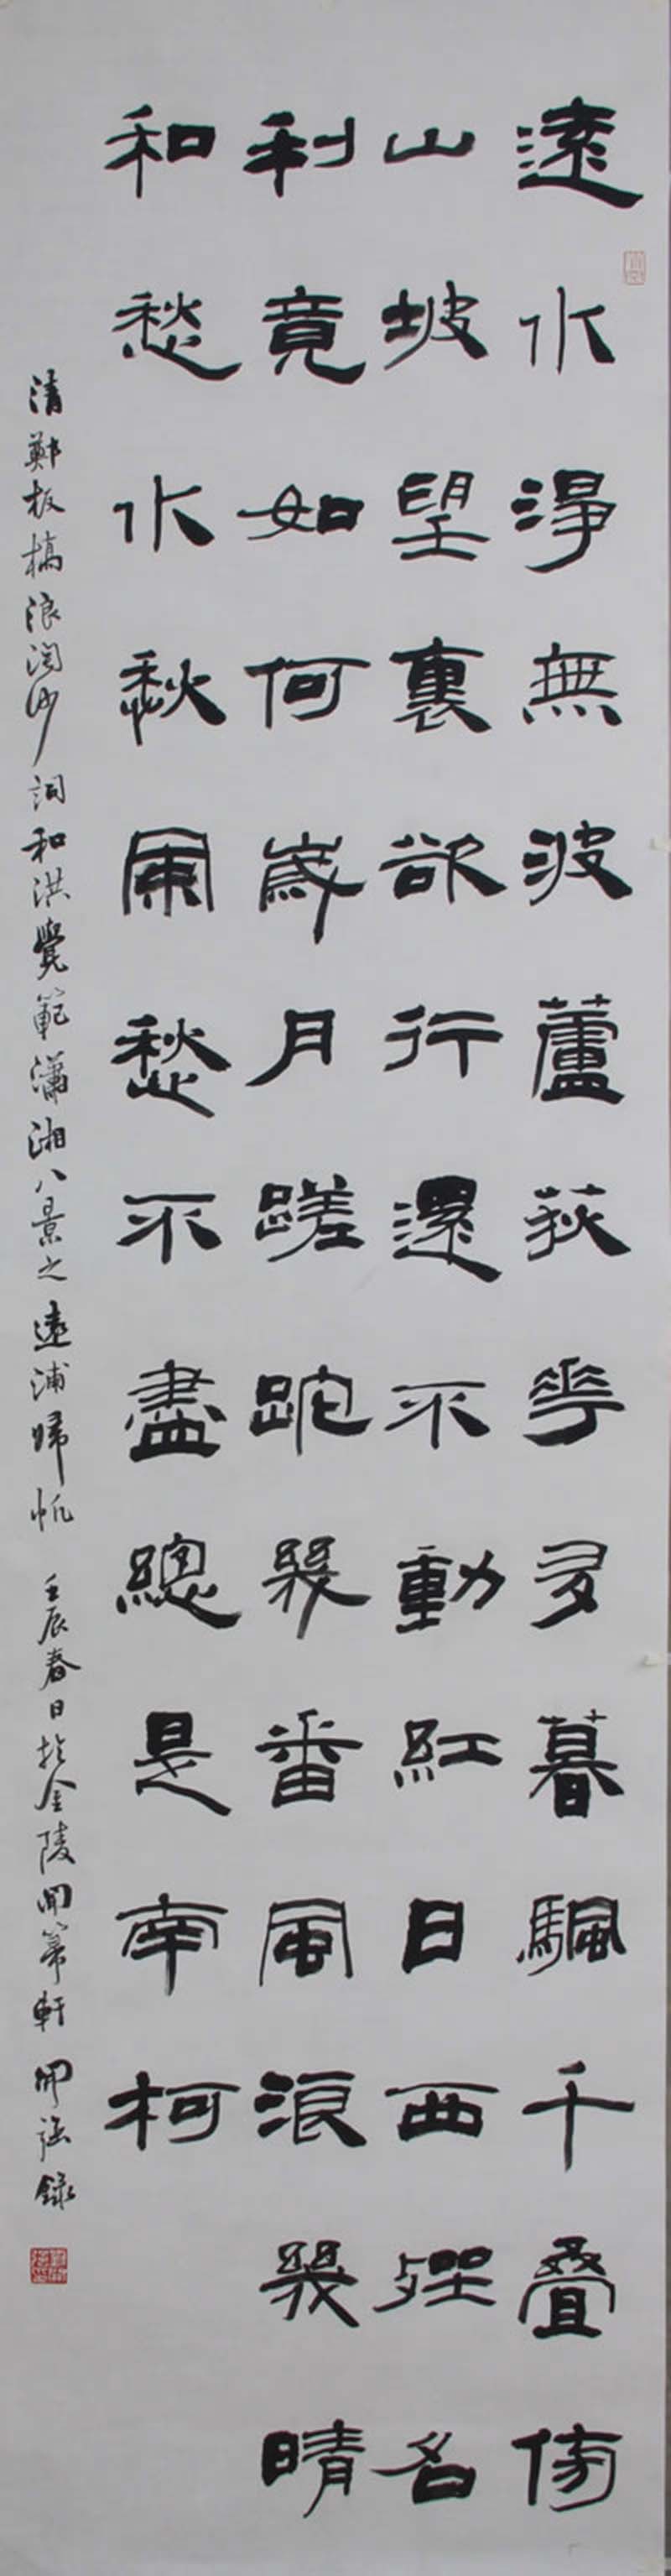 遠水淨無波蘆荻花多暮颿千疊傍
山坡望裏欲行還不動紅日西矬名
利竟如何歲月蹉跎幾番風浪幾晴
和愁水愁風愁不盡總是南柯
清鄭板橋浪淘沙詞和洪覺範瀟湘八景之遠浦歸帆 壬辰春日於金陵 軒 強錄